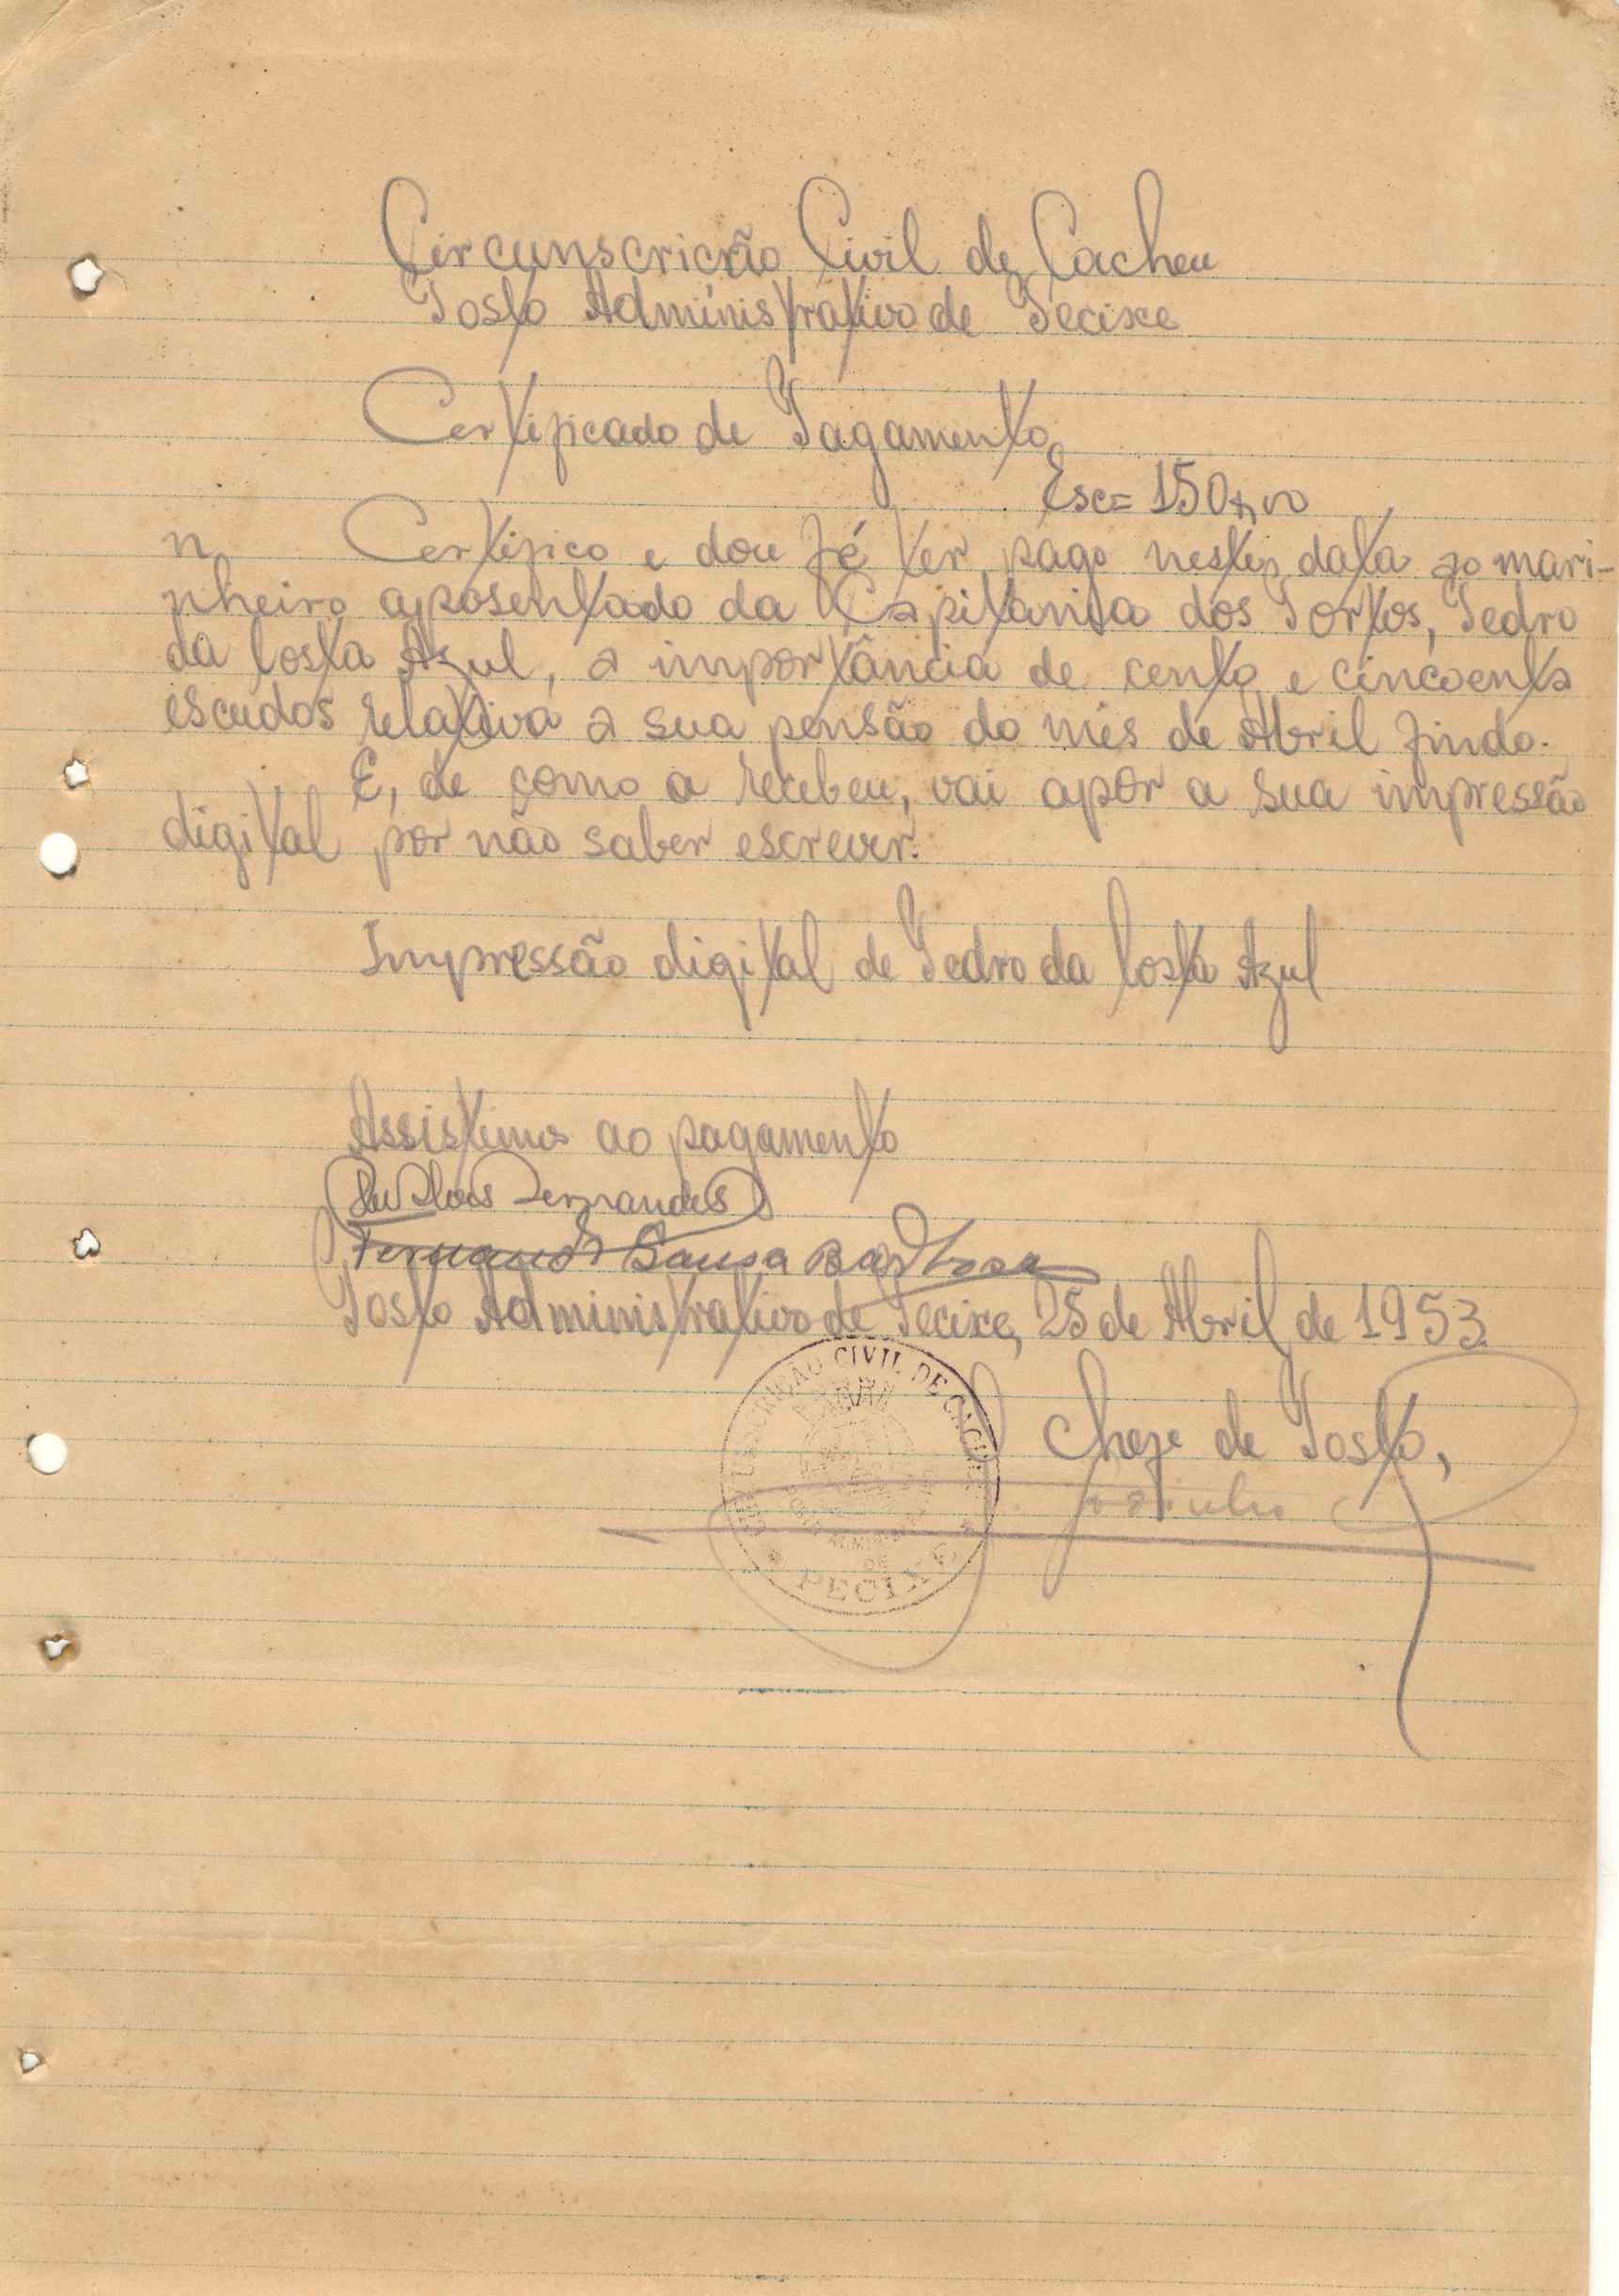 Circunscrição Civil de Cacheu
Posto Administrativo de Pecixe
Certificado de Pagamento
Esc= 150$00
n Certifico e dou fé ter pago nesta data ao mari-
nheiro aposentado da Capitania dos Portos, Pedro
da Costa Azul, a importância de cento e cincoenta
escudos relativa a sua pensão do mês de Abril findo.
E, de como a recebeu, vai apor a sua impressão
digital por não saber escrever.
Impressão digital de Pedro da Costa Azul
Assistimos ao pagamento
Fernandes
Fernando Sousa Barbosa
Posto Administrativo de Pecixe, 25 de Abril de 1953
O Chefe de Posto,
CIRCUNSCRIÇÃO CIVIL DE CACHEU
DE
PECIXE